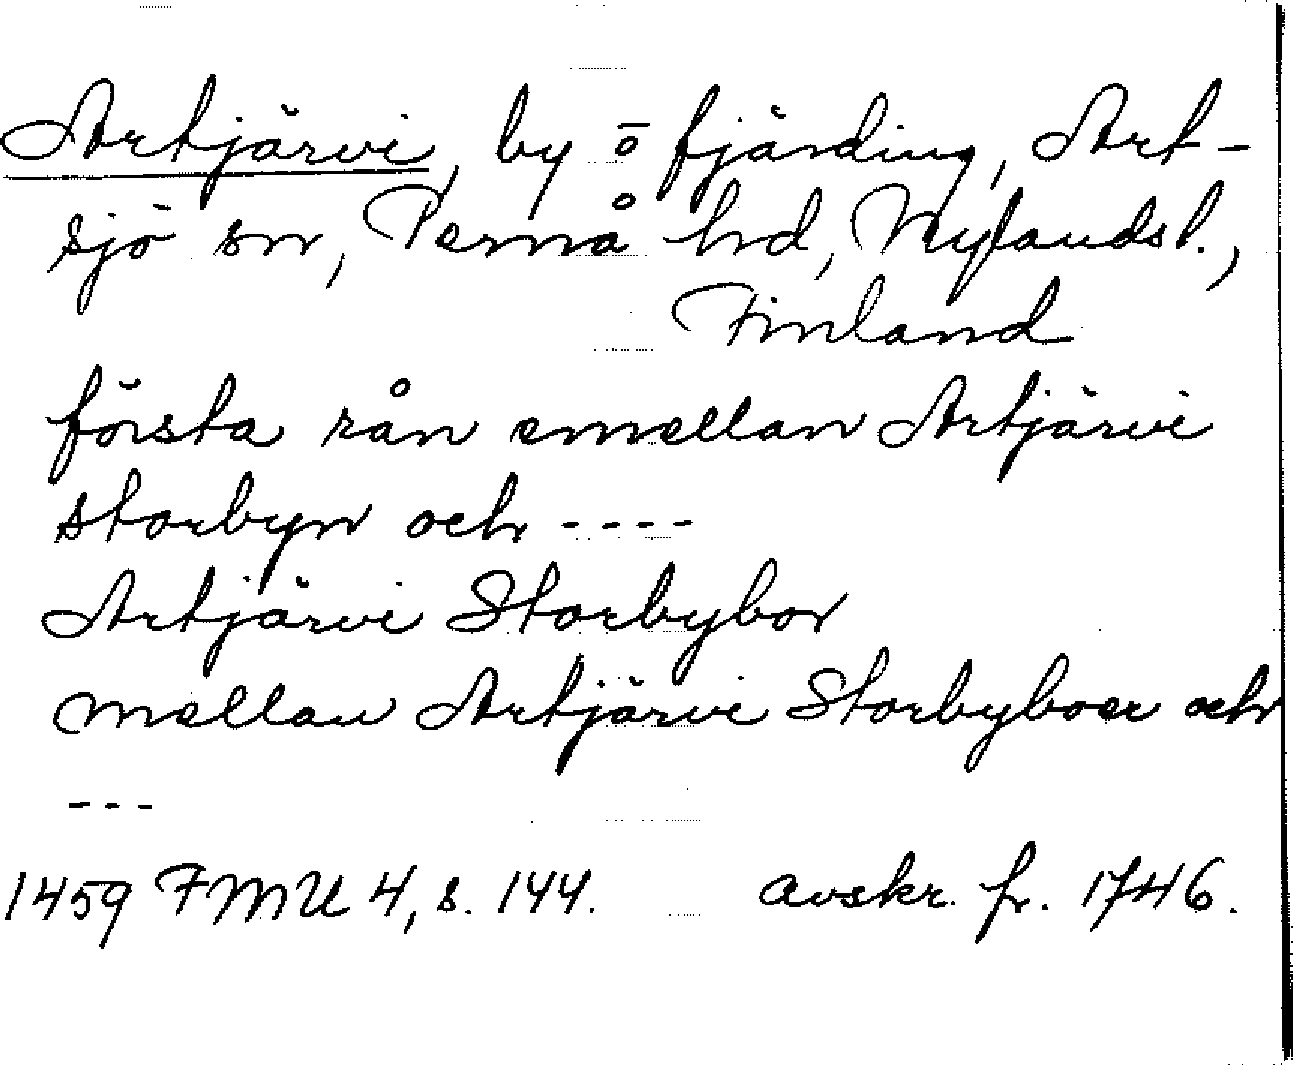 Artjärvi, by ō fjärding, Art-
sjö sn, Pernå hd, Nylands l.,
Finland
första rån emellan Artjärvi
storbyn och ----
Artjärvi Storbybor
mellan Artjärvi Storbyboer och
---
1459 FMU 4, s. 144. avskr. fr. 1746.